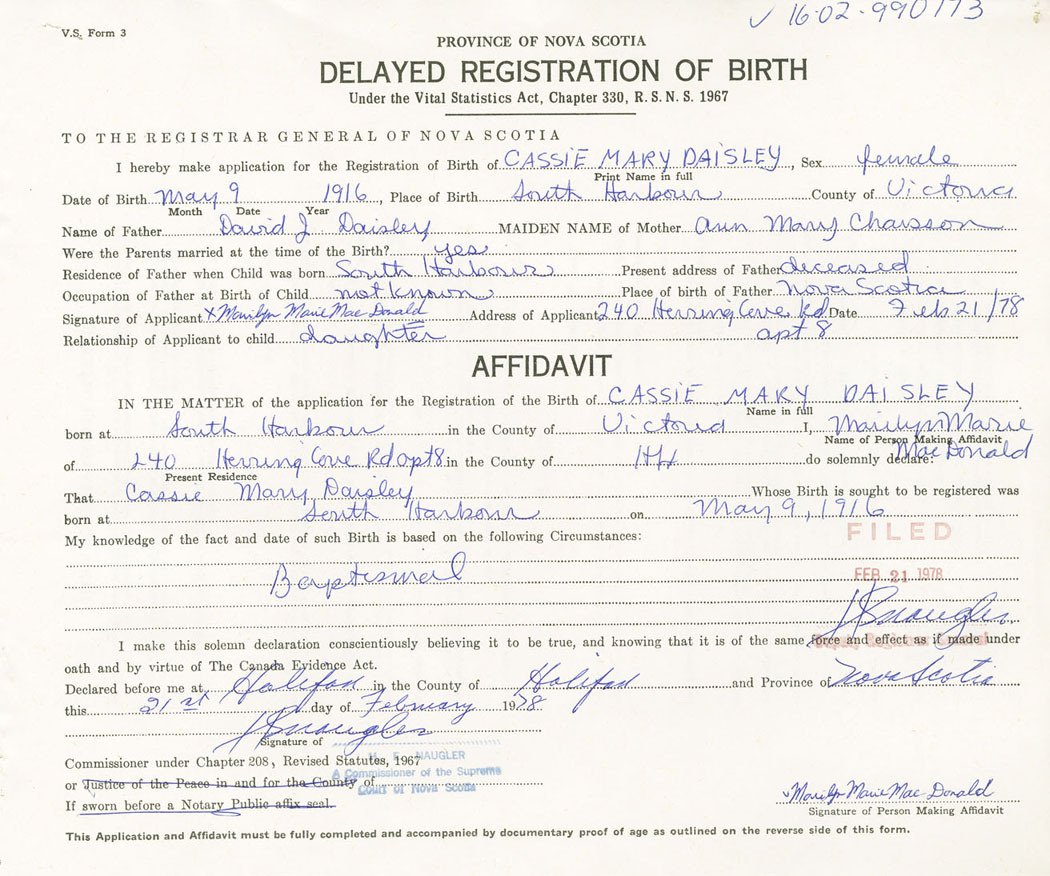 ✓ 16-02-990173
V.S. Form 3
PROVINCE OF NOVA SCOTIA
DELAYED REGISTRATION OF BIRTH
Under the Vital Statistics Act, Chapter 330, R. S. N. S. 1967
TO THE REGISTRAR GENERAL OF NOVA SCOTIA
I hereby make application for the Registration of Birth of CASSIE MARY DAISLEY, Sex female
Print Name in full
Date of Birth May 9 1916, Place of Birth South Harbour County of Victoria
Month Date Year
Name of Father David J Daisley MAIDEN NAME of Mother Ann Mary Chaisson
Were the Parents married at the time of the Birth? yes
Residence of Father when Child was born South Harbour Present address of Father deceased
Occupation of Father at Birth of Child not known Place of birth of Father Nova Scotia
Signature of Applicant x Marilyn Marie Mac Donald Address of Applicant 240 Herring Cove Rd Date Feb 21/78
Relationship of Applicant to child daughter apt 8
AFFIDAVIT
IN THE MATTER of the application for the Registration of the Birth of CASSIE MARY DAISLEY
Name in full
born at South Harbour in the County of Victoria I, Marilyn Marie
Name of Person Making Affidavit
of 240 Herring Cove Rd apt 8 in the County of Hfx do solemnly declare: MacDonald
Present Residence
That Cassie Mary Daisley Whose Birth is sought to be registered was
born at South Harbour on May 9, 1916
My knowledge of the fact and date of such Birth is based on the following Circumstances:
FILED
Baptismal
FEB 21 1978
I make this solemn declaration conscientiously believing it to be true, and knowing that it is of the same force and effect as if made under
oath and by virtue of The Canada Evidence Act.
Declared before me at Halifax in the County of Halifax and Province of Nova Scotia
this 21st day of February 1978
Signature of
NAUGLER
Commissioner under Chapter 208, Revised Statutes, 1967
A Commissioner of the Supreme
or Justice of the Peace in and for the County of
Court of Nova Scotia
If sworn before a Notary Public affix seal.
Marilyn Marie Mac Donald
Signature of Person Making Affidavit
This Application and Affidavit must be fully completed and accompanied by documentary proof of age as outlined on the reverse side of this form.